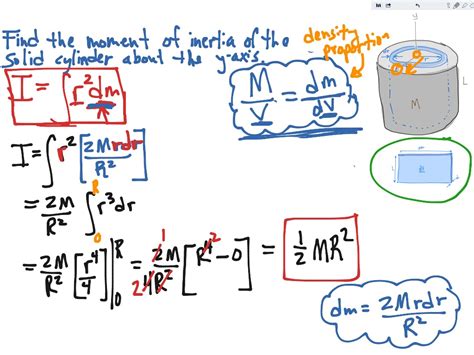 Find the moment of inertia of the
solid cylinder about the y-axis.
density
proportion
I = ∫ r² dm
M/V = dm/dV
y
R
L
M
I = ∫ r² [2Mrdr/R²]
= 2M/R² ∫₀ᴿ r³dr
= 2M/R² [r⁴/4] |₀ᴿ = 2M/4R² [R⁴ - 0] = 1/2 MR²
1
2
2
dm = 2Mrdr/R²